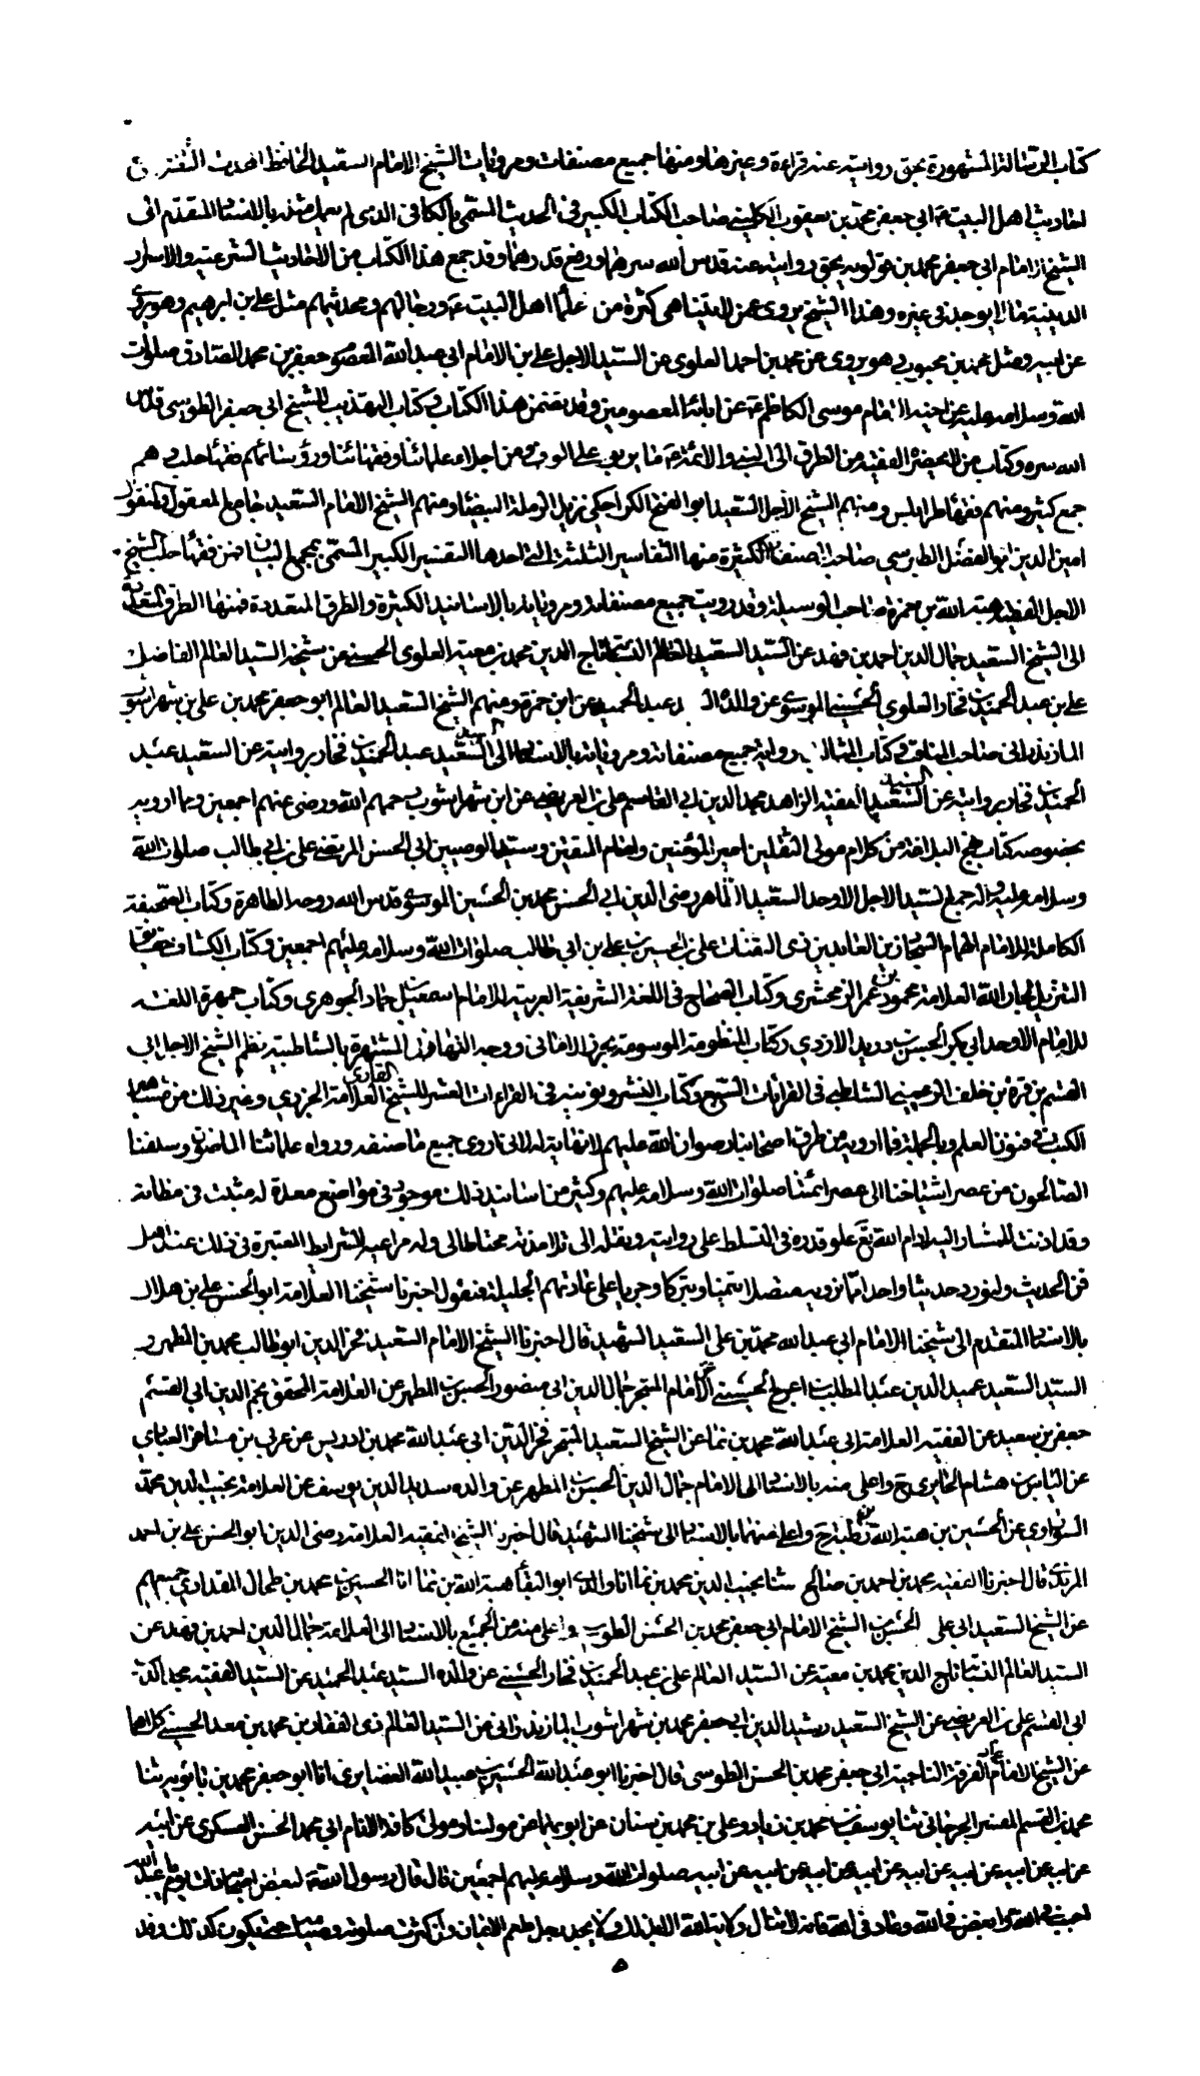 كتاب الرسالة المشهورة بحق روايته عنه قراءة وغيرها ومنها جميع مصنفات ومرويات الشيخ الامام السعيد الحافظ المحدث الثقة
احاديث اهل البيت ابي جعفر محمد بن يعقوب الكليني صاحب الكتاب الكبير في الحديث المسمى بالكافي الذي لم يعمل مثله بالاسناد المتقدم الى
الشيخ الامام ابي جعفر محمد بن قولويه بحق روايته عنه قدس الله سرهما ورفع قدرهما وقد جمع هذا الكتاب من الاحاديث الشرعية والاسرار
الدينية ما لا يوجد في غيره وهذا الشيخ يروي عمن لا يتناهى كثرة من علماء اهل البيت ع ورجالهم ومحدثيهم مثل علي بن ابرهيم وهو يروي
عن ابيه ومثل محمد بن محبوب وهو يروي عن محمد بن احمد العلوي عن السيد الاجل علي بن الامام ابي عبد الله المعصوم جعفر بن محمد الصادق صلوات
الله وسلامه عليه عن اخيه الامام موسى الكاظم ع عن ابائه المعصومين وقد تضمن هذا الكتاب وكتاب التهذيب للشيخ ابي جعفر الطوسي قدس
الله سره وكتاب من لا يحضره الفقيه من الطرق الى النبي والائمة ما يربو على الالوف ومن اجلاء علمائنا وفقهائنا ورؤسائهم فقهاء حلب وهم
جمع كثير ومنهم فقهاء طرابلس ومنهم الشيخ الاجل السعيد ابو الفتح الكراجكي نزيل الرملة البيضاء ومنهم الشيخ الامام السعيد جامع المعقول والمنقول
امين الدين ابو الفضل الطبرسي صاحب المصنفات الكثيرة منها التفاسير الثلثة التي احدها التفسير الكبير المسمى بمجمع البيان فمن فقهاء حلب الشيخ
الاجل الفقيه هبة الله بن حمزة صاحب الوسيلة وقد رويت جميع مصنفاته ومروياته بالاسانيد الكثيرة والطرق المتعددة فمنها الطرق المتقدمة
الى الشيخ السعيد جمال الدين احمد بن فهد عن السيد السعيد العالم النسابة تاج الدين محمد بن معية العلوي الحسني عن شيخه السيد العالم الفاضل
علي بن عبد الحميد بن فخار العلوي الحسيني الموسوي عن والده عبد الحميد عن ابن حمزة ومنهم الشيخ السعيد العالم ابو جعفر محمد بن علي بن شهراشوب
المازندراني صاحب المناقب وكتاب المثالب رواية جميع مصنفاته ومروياته بالاسناد الى السيد السعيد عبد الحميد بن فخار بروايته عن السعيد عبد
الحميد بن فخار بروايته عن السيد السعيد الفقيه الزاهد مجد الدين ابي القاسم علي بن العريضي عن ابن شهراشوب رحمهم الله ورضي عنهم اجمعين ومما ارويه
بخصوصه كتاب نهج البلاغة من كلام مولى الثقلين امير المؤمنين وامام المتقين وسيد الوصيين ابي الحسن المرتضى علي بن ابي طالب صلوات الله
وسلامه عليه جمع السيد الاجل الاوحد السعيد الطاهر رضي الدين ابي الحسن محمد بن الحسين الموسوي قدس الله روحه الطاهرة وكتاب الصحيفة
الكاملة للامام الهمام السجاد زين العابدين ذي الثفنات علي بن الحسين بن علي بن ابي طالب صلوات الله وسلامه عليهم اجمعين وكتاب الكشاف حقايق
التنزيل لجار الله العلامة محمود بن عمر الزمخشري وكتاب الصحاح في اللغة الشريفة العربية للامام اسمعيل بن حماد الجوهري وكتاب جمهرة اللغة
للامام الاوحد ابي بكر الحسن بن دريد الازدي وكتاب المنظومة الموسومة بحرز الاماني ووجه التهاني المشتهرة بالشاطبية نظم الشيخ الاجل ابي
القسم بن فيره بن خلف الرعيني الشاطبي في القراءات السبع وكتاب النشر في القراءات العشر للشيخ القاري العلامة الجزري وغير ذلك من مشاهير
الكتب في فنون العلم وبالجملة فما ارويه من طرق اصحابنا رضوان الله عليهم لا نهاية له لاني اروي جميع ما صنفه ورواه علماؤنا الماضون وسلفنا
الصالحون من عصر اشياخنا الى عصر ائمتنا صلوات الله وسلامه عليهم وكثير من اسانيد ذلك موجود في مواضع معدة له مثبت في مظانه
وقد اذنت للمشار اليه ادام الله تعالى علو قدره في التسلط على روايته ونقله الى تلامذته محتاطا لي وله مراعيا للشرايط المعتبرة في ذلك عند اهل
فن الحديث ولنورد حديثا واحدا مما نرويه متصلا تيمنا وتبركا وجريا على عادتهم الجليلة فنقول اخبرنا شيخنا العلامة ابو الحسن علي بن هلال
بالاسناد المتقدم الى شيخنا الامام ابي عبد الله محمد بن مكي السعيد الشهيد قال اخبرنا الشيخ الامام السعيد فخر الدين ابو طالب محمد بن المطهر و
السيد السعيد عميد الدين عبد المطلب بن اعرج الحسيني عن الامام المتبحر جمال الدين ابي منصور الحسن بن المطهر عن العلامة المحقق نجم الدين ابي القسم
جعفر بن سعيد عن الفقيه العلامة ابي عبد الله محمد بن نما عن الشيخ السعيد المتبحر فخر الدين ابي عبد الله محمد بن ادريس عن عربي بن مسافر العبادي
عن الياس بن هشام الحايري ح واعلى منه بالاسناد الى الامام جمال الدين الحسن بن المطهر عن والده سديد الدين يوسف عن العلامة نجيب الدين محمد
السوراوي عن الحسين بن هبة الله بن رطبة ح واعلى منهما بالاسناد الى شيخنا الشهيد قال اخبرنا الشيخ الفقيه العلامة رضي الدين ابو الحسن علي بن احمد
المزيدي قال اخبرنا الفقيه محمد بن احمد بن صالح ثنا نجيب الدين محمد بن نما انا والدي ابو البقاء هبة الله بن نما انا الحسين بن محمد بن طحال المقدادي جميعهم
عن الشيخ السعيد ابي علي الحسن بن الشيخ الامام ابي جعفر محمد بن الحسن الطوسي واعلى منه من الجميع بالاسناد الى العلامة جمال الدين احمد بن فهد عن
السيد العالم النسابة تاج الدين محمد بن معية عن السيد العالم علي بن عبد الحميد بن فخار الحسيني عن والده السيد عبد الحميد عن السيد الفقيه مجد الدين
ابي القسم علي بن العريضي عن الشيخ السعيد رشيد الدين ابي جعفر محمد بن شهراشوب المازندراني عن السيد العالم ذي الفقار بن محمد بن معد الحسني كلاهما
عن الشيخ الامام عماد الفرقة الناجية ابي جعفر محمد بن الحسن الطوسي قال اخبرنا ابو عبد الله الحسين بن عبيد الله الغضايري انا ابو جعفر محمد بن بابويه ثنا
محمد بن القسم المفسر الجرجاني ثنا يوسف بن محمد بن زياد وعلي بن محمد بن سنان عن ابويهما عن مولانا ومولى كافة الانام ابي محمد الحسن العسكري عن ابيه
عن ابيه عن ابيه عن ابيه عن ابيه عن ابيه عن ابيه عن ابيه عن ابيه صلوات الله وسلامه عليهم اجمعين قال قال رسول الله لبعض اصحابه ذات يوم يا عبد الله
احبب في الله وابغض في الله ووال في الله وعاد في الله فانه لا تنال ولاية الله الا بذلك ولا يجد رجل طعم الايمان وان كثرت صلوته وصيامه حتى يكون كذلك وقد